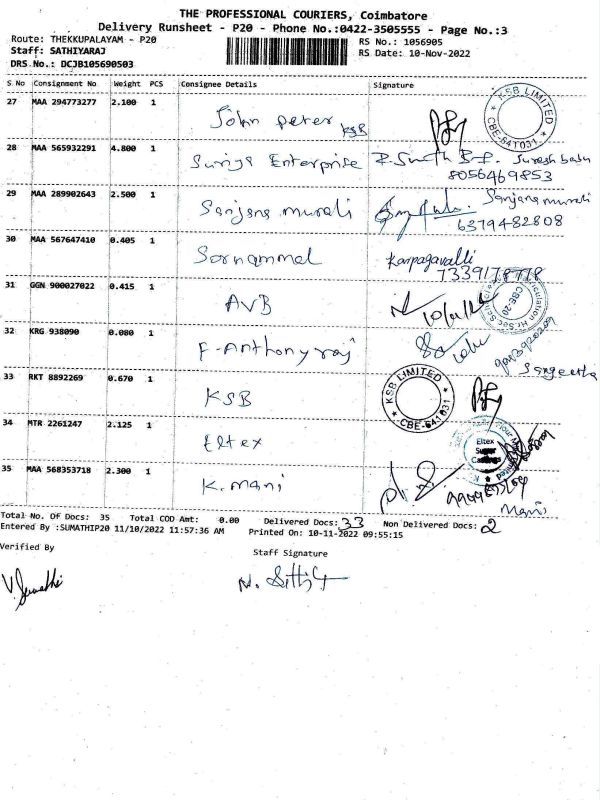 THE PROFESSIONAL COURIERS, Coimbatore
Delivery Runsheet - P20 - Phone No.:0422-3505555 - Page No.:3
Route: THEKKUPALAYAM - P20
RS No.: 1056905
Staff: SATHIYARAJ
RS Date: 10-Nov-2022
DRS No.: DCJB105690503
S No Consignment No Weight PCS Consignee Details Signature
27 MAA 294773277 2.100 1 John peter KSB
KSB LIMITED CBE-641031
28 MAA 565932291 4.800 1 Suriya Enterprise Suresh babu
8056469853
29 MAA 289902643 2.500 1 Sanjana murali Sanjana murali
6379482808
30 MAA 567647410 0.405 1 Sornammal Karpagavalli
7339178778
31 GGN 900027022 0.415 1 AVB
CBE-20
32 KRG 938090 0.080 1 F-Anthonyraj
Sangeetha
33 RKT 8892269 0.670 1 KSB
KSB LIMITED CBE-641031
34 MTR 2261247 2.125 1 Eltex
Eltex Super Castings
35 MAA 568353718 2.300 1 K.mani
Mani
Total No. Of Docs: 35 Total COD Amt: 0.00 Delivered Docs: 33 Non Delivered Docs: 2
Entered By :SUMATHIP20 11/10/2022 11:57:36 AM Printed On: 10-11-2022 09:55:15
Verified By
Staff Signature